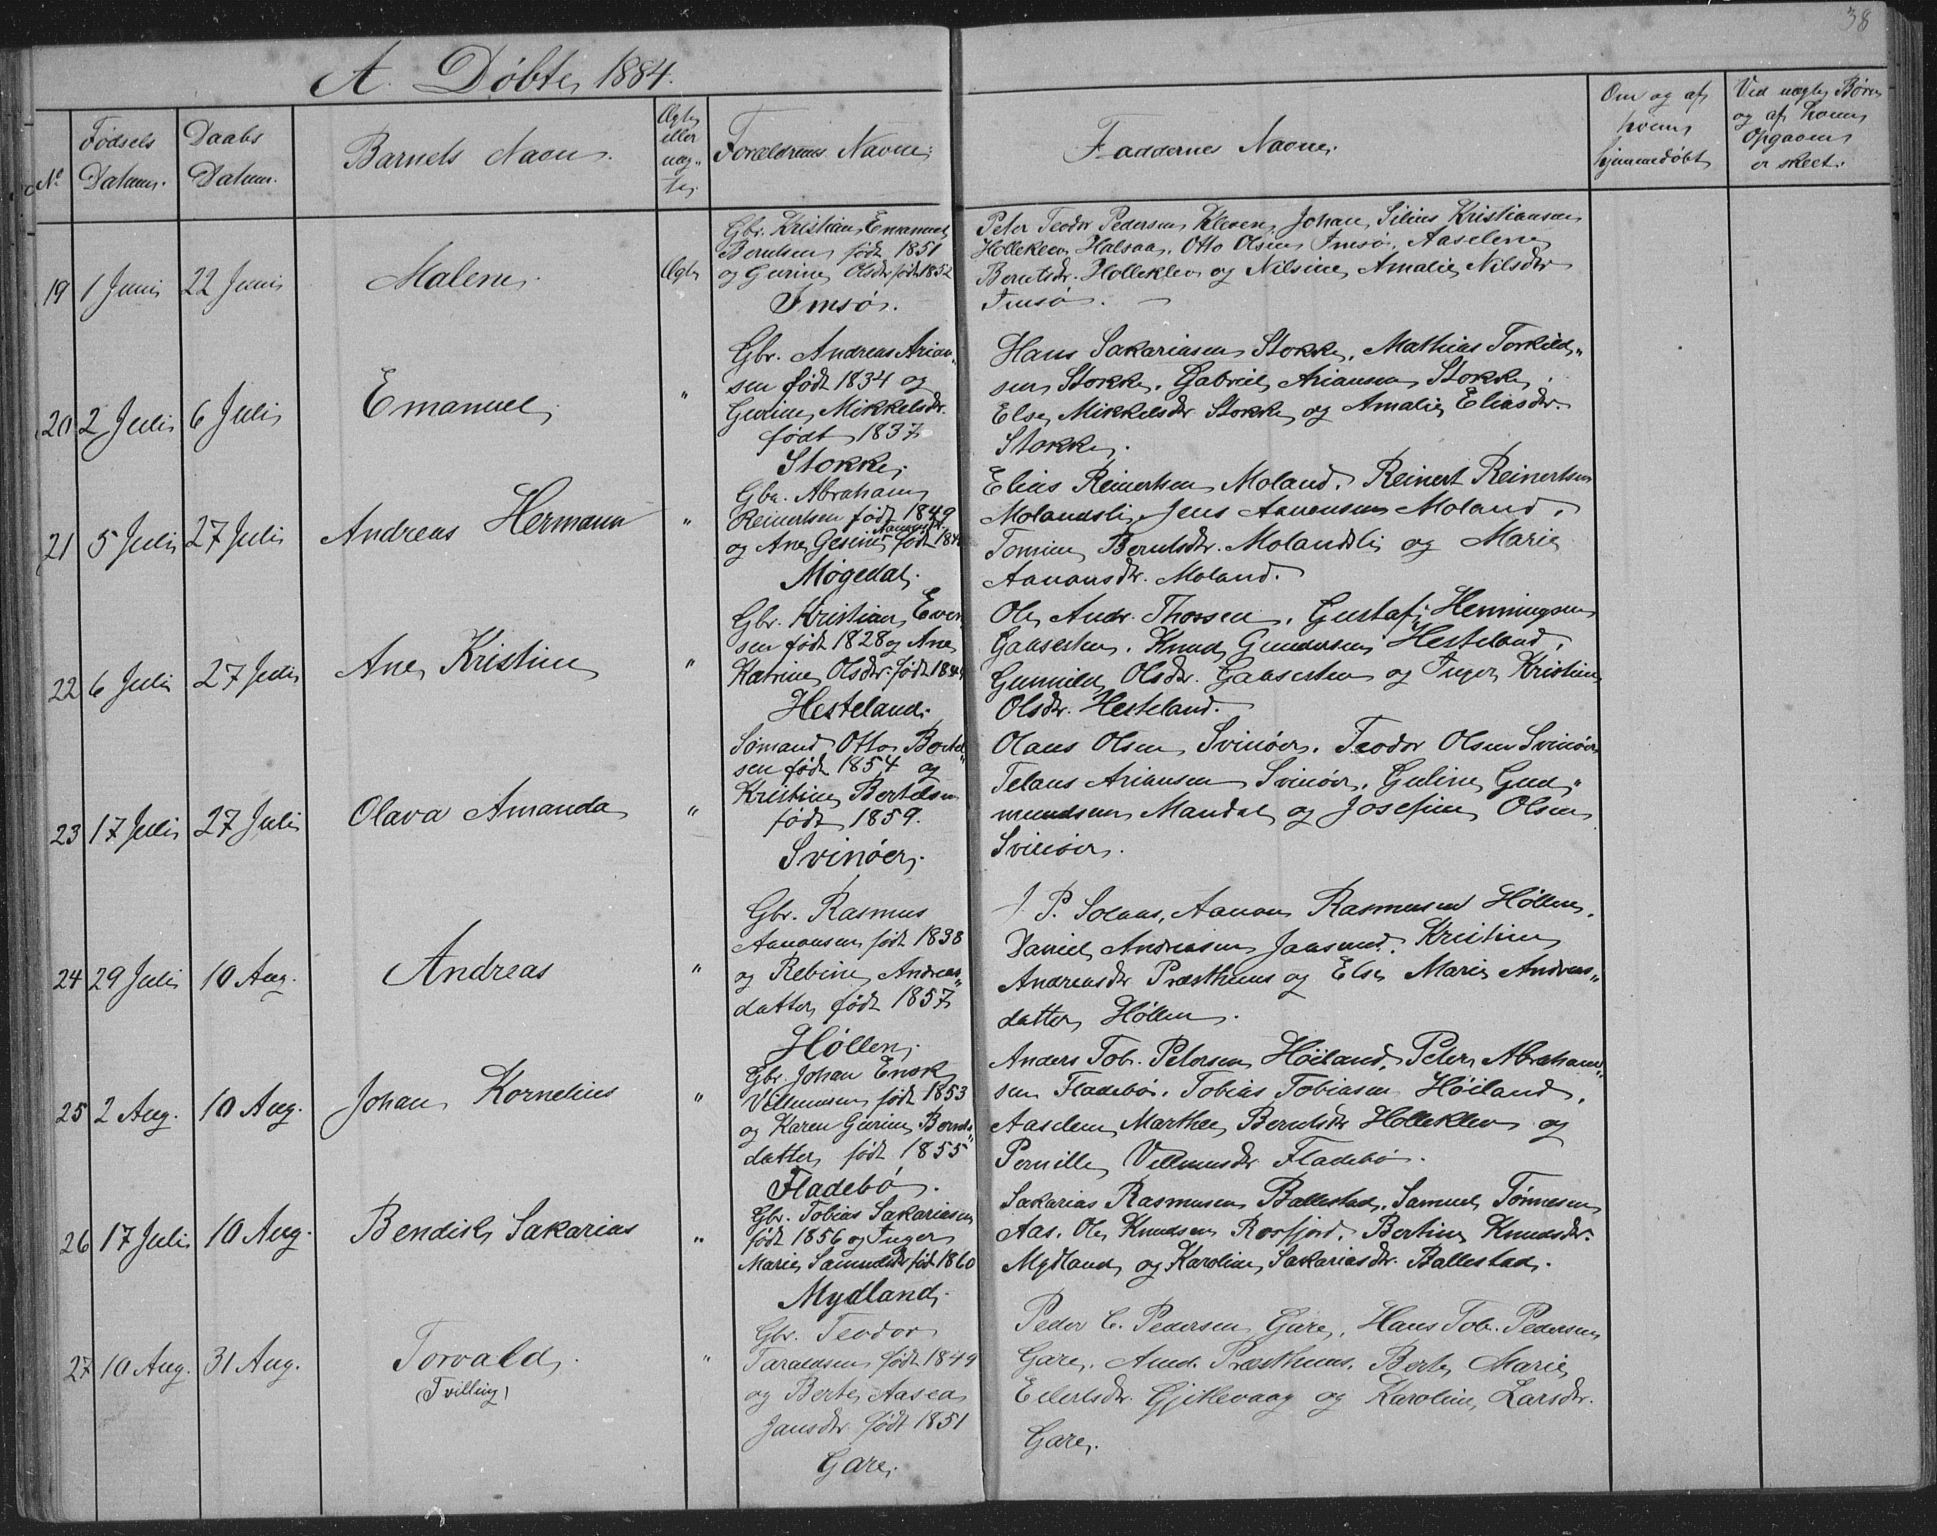 38
A. Døbte 1884.
No
Fødsels Datum.
Daabs Datum.
Barnets Navn.
Ægte eller uæg- te.
Forældrenes Navne.
Faddernes Navne.
Om og af hvem hjemmedøbt
Ved uægte Børn og af hvem Opgaven er skeet.
19 1 Juni 22 Juni Malene. Ægte
Gbr. Kristian Emanuel
Berntsen født 1851
og Gurine Olsdtr født 1852
Imsø.
Peter Teodor Pedersen Kleven, Johan Silius Kristiansen
Holleklev, Halsaa, Otto Olsen Imsø, Aaselene
Berntsdtr. Holleklev og Nilsine Amalie Nilsdtr
Imsø.
20 2 Juli 6 Juli Emanuel "
Gbr. Andreas Arian-
sen født 1834 og
Gurine Mikkelsdtr.
født 1837
Stokke.
Hans Sakariasen Stokke, Mathias Torkild-
sen Stokke, Gabriel Ariansen Stokke,
Else Mikkelsdtr Stokke og Amalie Eliasdtr.
Stokke.
21 5 Juli 27 Juli Andreas Hermann "
Gbr. Abraham
Reinertsen født 1849
og Ane Gesine Aanonsdt. født 184
Møgedal.
Elias Reinertsen Moland, Reinert Reinertsen
Molandsli, Jens Aanonsen Moland,
Tomine Berntsdtr. Molandsli og Marie
Aanonsdtr. Moland.
22 6 Juli 27 Juli Ane Kristine "
Gbr. Kristian Even
sen født 1828 og Ane
Katrine Olsdtr. født 184
Hesteland.
Ole Andr. Thorsen, Gustaf Henningsen
Gaasesten, Knud Gundersen Hesteland,
Gunnild Olsdtr. Gaasesten og Inger Kristine
Olsdtr. Hesteland.
23 17 Juli 27 Juli Olava Amanda "
Sømand Otto Bertel-
sen født 1854 og
Kristine Bertelsen
født 1859.
Svinøer.
Olaus Olsen Svinøer, Teodor Olsen Svinøer
Telaus Ariansen Svinøer, Guline Gud-
mundsen Mandal og Josefine Olsen
Svinøer.
24 29 Juli 10 Aug. Andreas "
Gbr. Rasmus
Aanonsen født 1838
og Rebine Andreas-
datter født 1857
Høllen.
J. P. Solaas, Aanon Rasmussen Høllen,
Daniel Andreasen Jaasund, Kristine
Andreasdtr Præsthuus og Else Marie Andreas-
datter Høllen.
25 2 Aug. 10 Aug. Johan Kornelius "
Gbr. Johan Enok
Villumsen født 1853
og Karen Gurine Bernts-
datter født 1855
Fladebø.
Anders Tob. Petersen Høiland, Peter Abraham-
sen Fladebø, Tobias Tobiasen Høiland,
Aaselene Marthee Berntsdtr Holleklev og
Pernille Villumsdtr Fladebø.
26 17 Juli 10 Aug. Bendik Sakarias "
Gbr. Tobias Sakariasen
født 1856 og Inger
Marie Samuelsdtr født 1860
Mydland.
Sakarias Rasmusen Ballestad, Samuel Tønnesen
Aas, Ole Knudsen Rosfjord, Bertine Knudsdtr.
Mydland og Karoline Sakariasdtr. Ballestad.
27 10 Aug. 31 Aug. Torvald. "
(Tvilling)
Gbr. Teodor
Taraldsen født 1849
og Berte Aasea
Jansdtr født 1851
Gare.
Peder C. Pedersen Gare, Hans Tob. Pedersen
Gare, Amd. Præsthuus, Berte Marie
Eilertsdtr. Gjitlevaag og Karoline Larsdtr.
Gare.